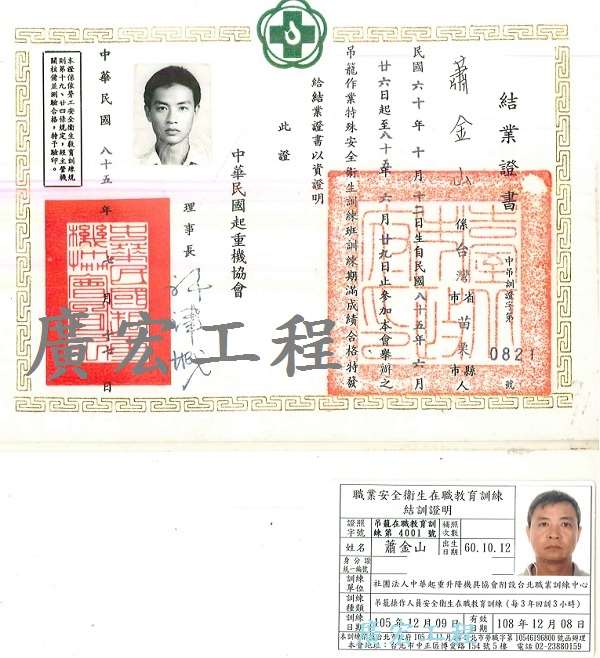 結業證書
中吊訓證字第0821號
蕭金山 係台灣省市苗栗縣市人
民國六十年十月十二日生自民國八十五年六月
廿六日起至八十五年六月廿九日止參加本會舉辦之
吊籠作業特殊安全衛生訓練班訓練期滿成績合格特發
給結業證書以資證明
此證
中華民國起重機協會
理事長
中華民國八十五年七月 日
本證係依勞工安全衛生教育訓練規
則第十九、廿四條規定，經主管機
關核備並測驗合格，特予驗印。
廣宏工程
職業安全衛生在職教育訓練
結訓證明
證照字號 吊籠在職教育訓練第 4001 號 補照次數
姓名 蕭金山 出生日期 60.10.12
身分證統一編號
訓練單位 社團法人中華起重升降機具協會附設台北職業訓練中心
訓練種類 吊籠操作人員安全衛生在職教育訓練 (每3年回訓3小時)
訓練日期 105年12月09日 有效日期 108年12月08日
本會地址：台北市中正區博愛路154號5樓 電話 02-23880159
廣宏工程